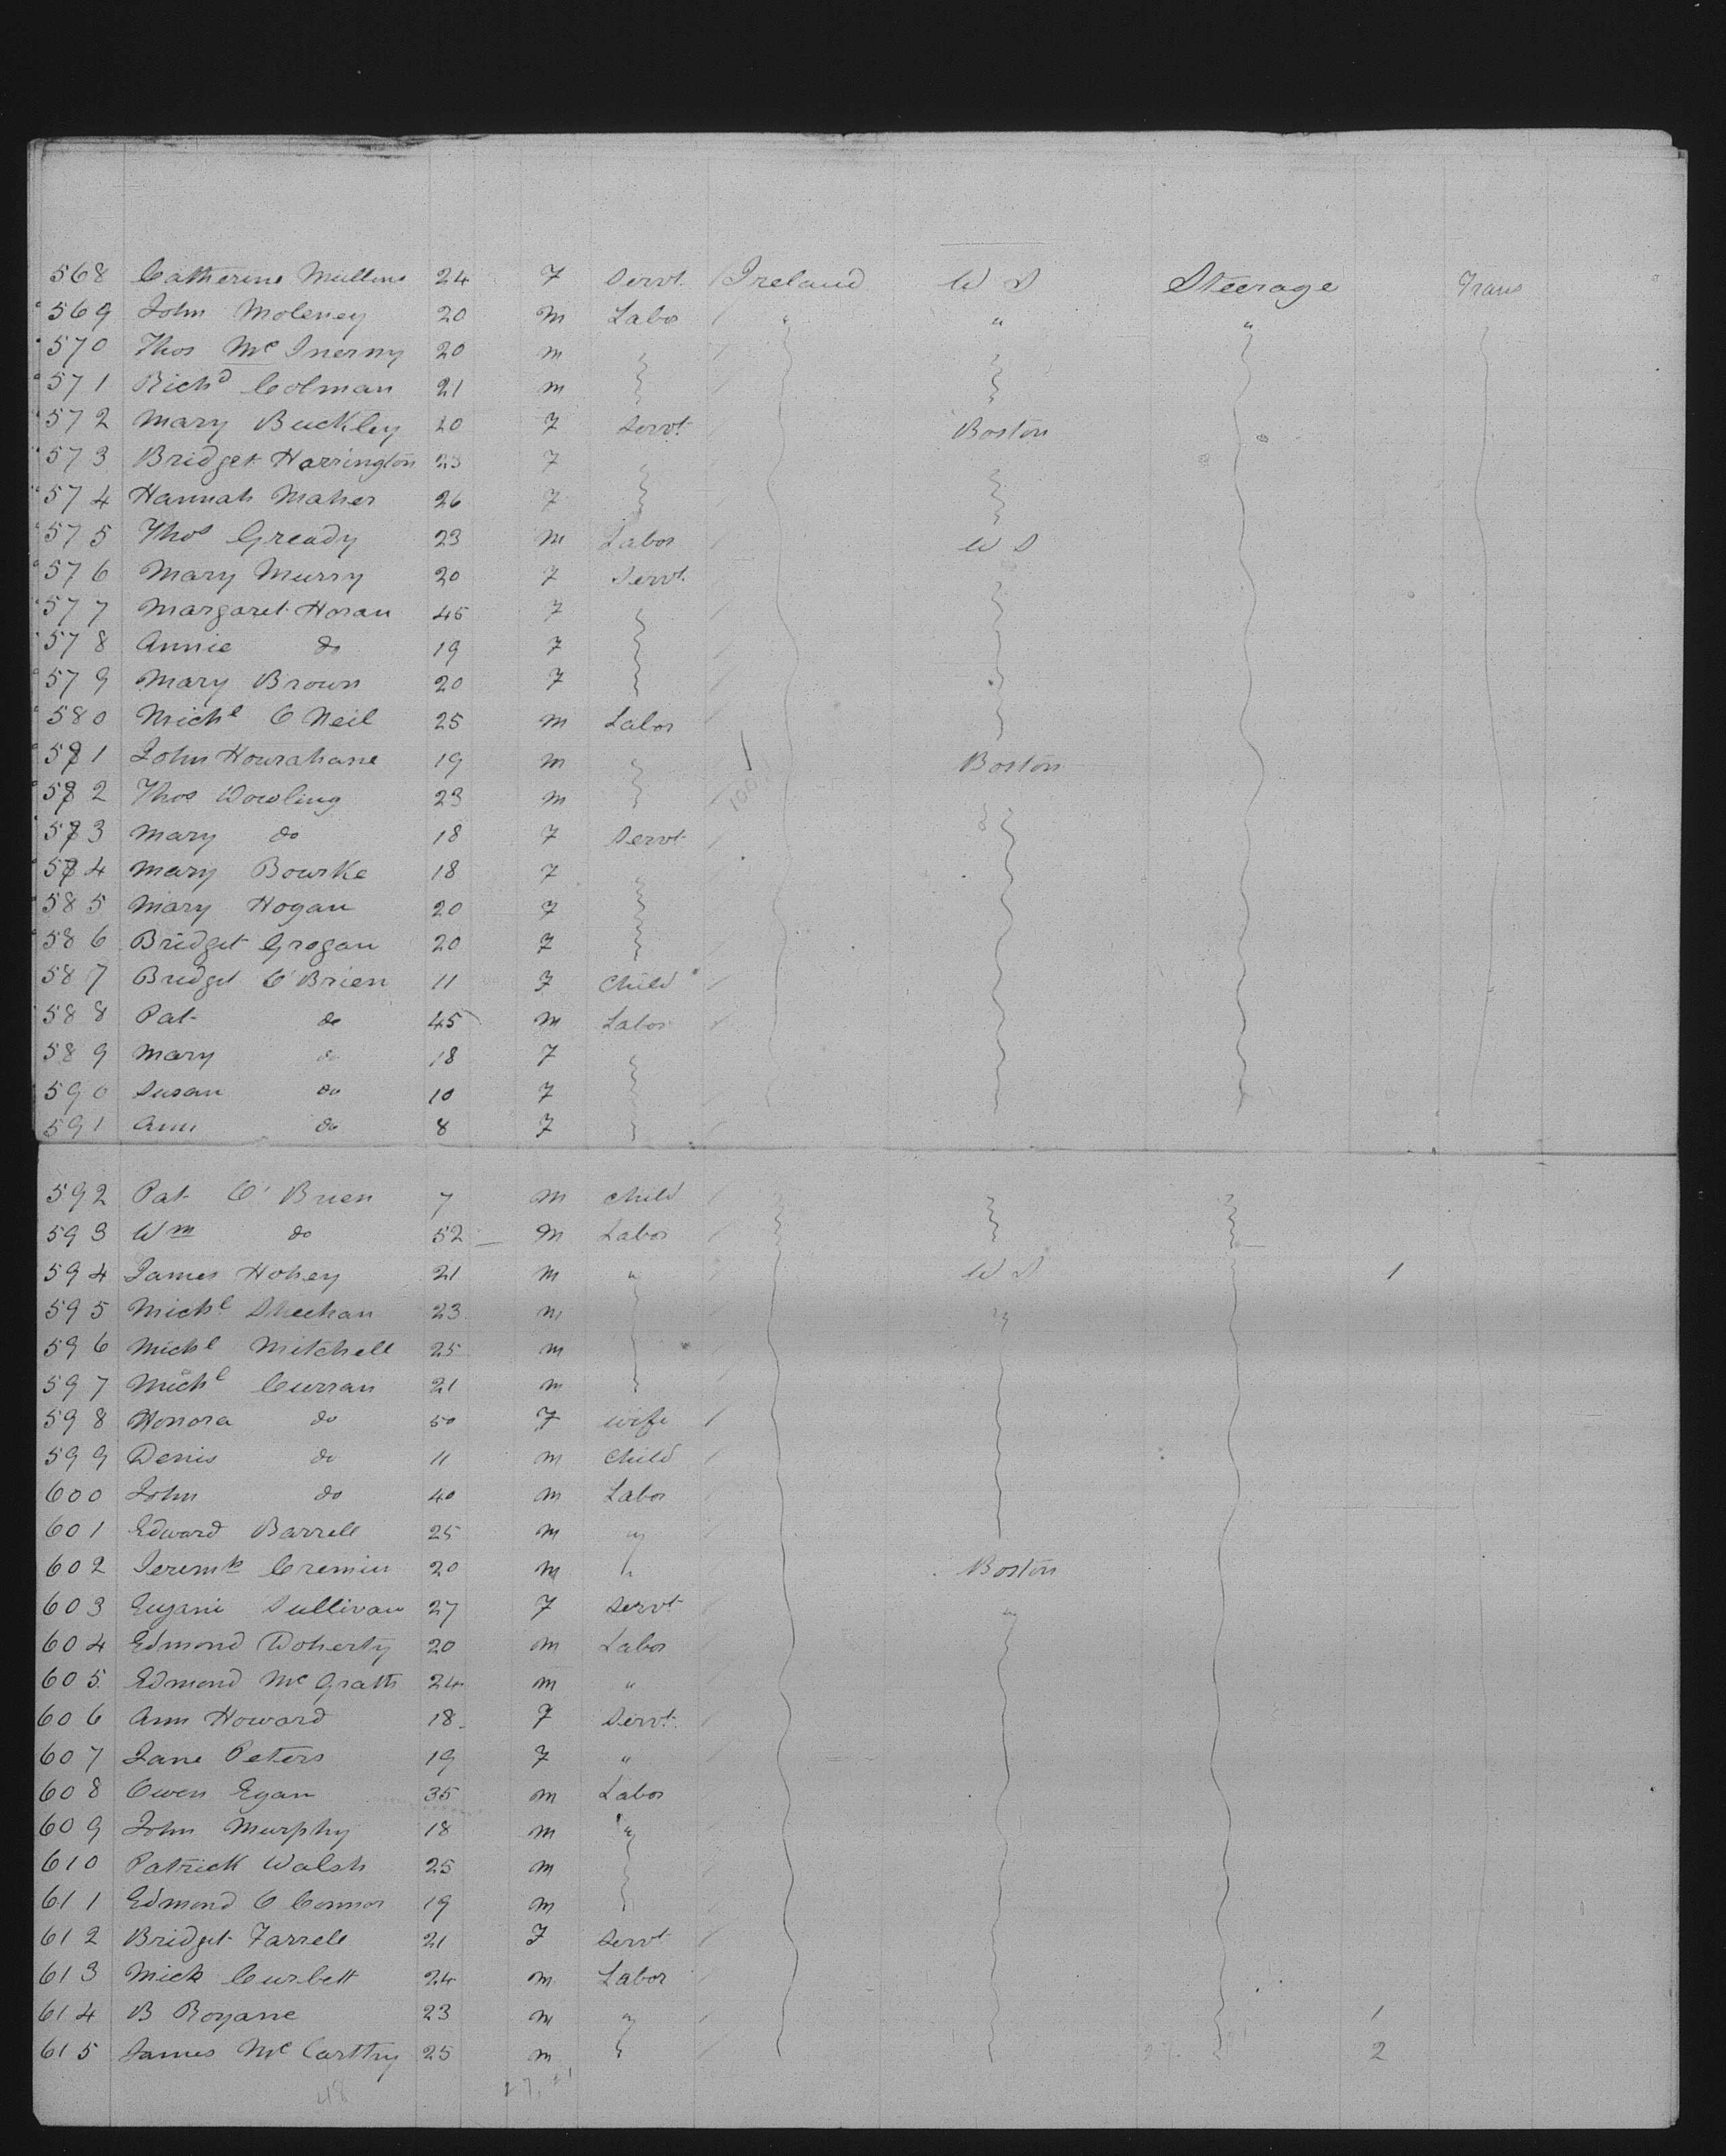 568 Catherine Mullins 24 F Servt Ireland U S Steerage Trans
569 John Moleney 20 M Labor " " "
570 Thos McInerny 20 M
571 Richd Colman 21 M
572 Mary Buckley 20 F Servt Boston
573 Bridget Harrington 23 F
574 Hannah Maher 26 F
575 Thos Gready 23 M Labor U S
576 Mary Murry 20 F Servt
577 Margaret Horan 45 F
578 Annie do 19 F
579 Mary Brown 20 F
580 Michl O Neil 25 M Labor
581 John Hourahane 19 M Boston
582 Thos Dowling 23 M
583 Mary do 18 F Servt
584 Mary Bourke 18 F
585 Mary Hogan 20 F
586 Bridget Grogan 20 F
587 Bridget O'Brien 11 F Child
588 Pat do 45 M Labor
589 Mary do 18 F
590 Susan do 10 F
591 Ann do 8 F
592 Pat O'Brien 7 M Child
593 Wm do 52 M Labor
594 James Hohey 21 M " U S 1
595 Michl Sheehan 23 M "
596 Michl Mitchell 25 M
597 Michl Curran 21 M
598 Honora do 50 F Wife
599 Denis do 11 M Child
600 John do 40 M Labor
601 Edward Barrell 25 M "
602 Jeremh Cremin 20 M " Boston
603 Eugani Sullivan 27 F Servt "
604 Edmond Doherty 20 M Labor
605 Edmond McGrath 24 M "
606 Ann Howard 18 F Servt
607 Jane Peters 19 F "
608 Owen Egan 35 M Labor
609 John Murphy 18 M "
610 Patrick Walsh 25 M
611 Edmond O Connor 19 M
612 Bridget Farrell 21 F Servt
613 Mick Curbett 24 M Labor
614 B Royane 23 M " 1
615 James McCarthy 25 M " 2
48 27. 21